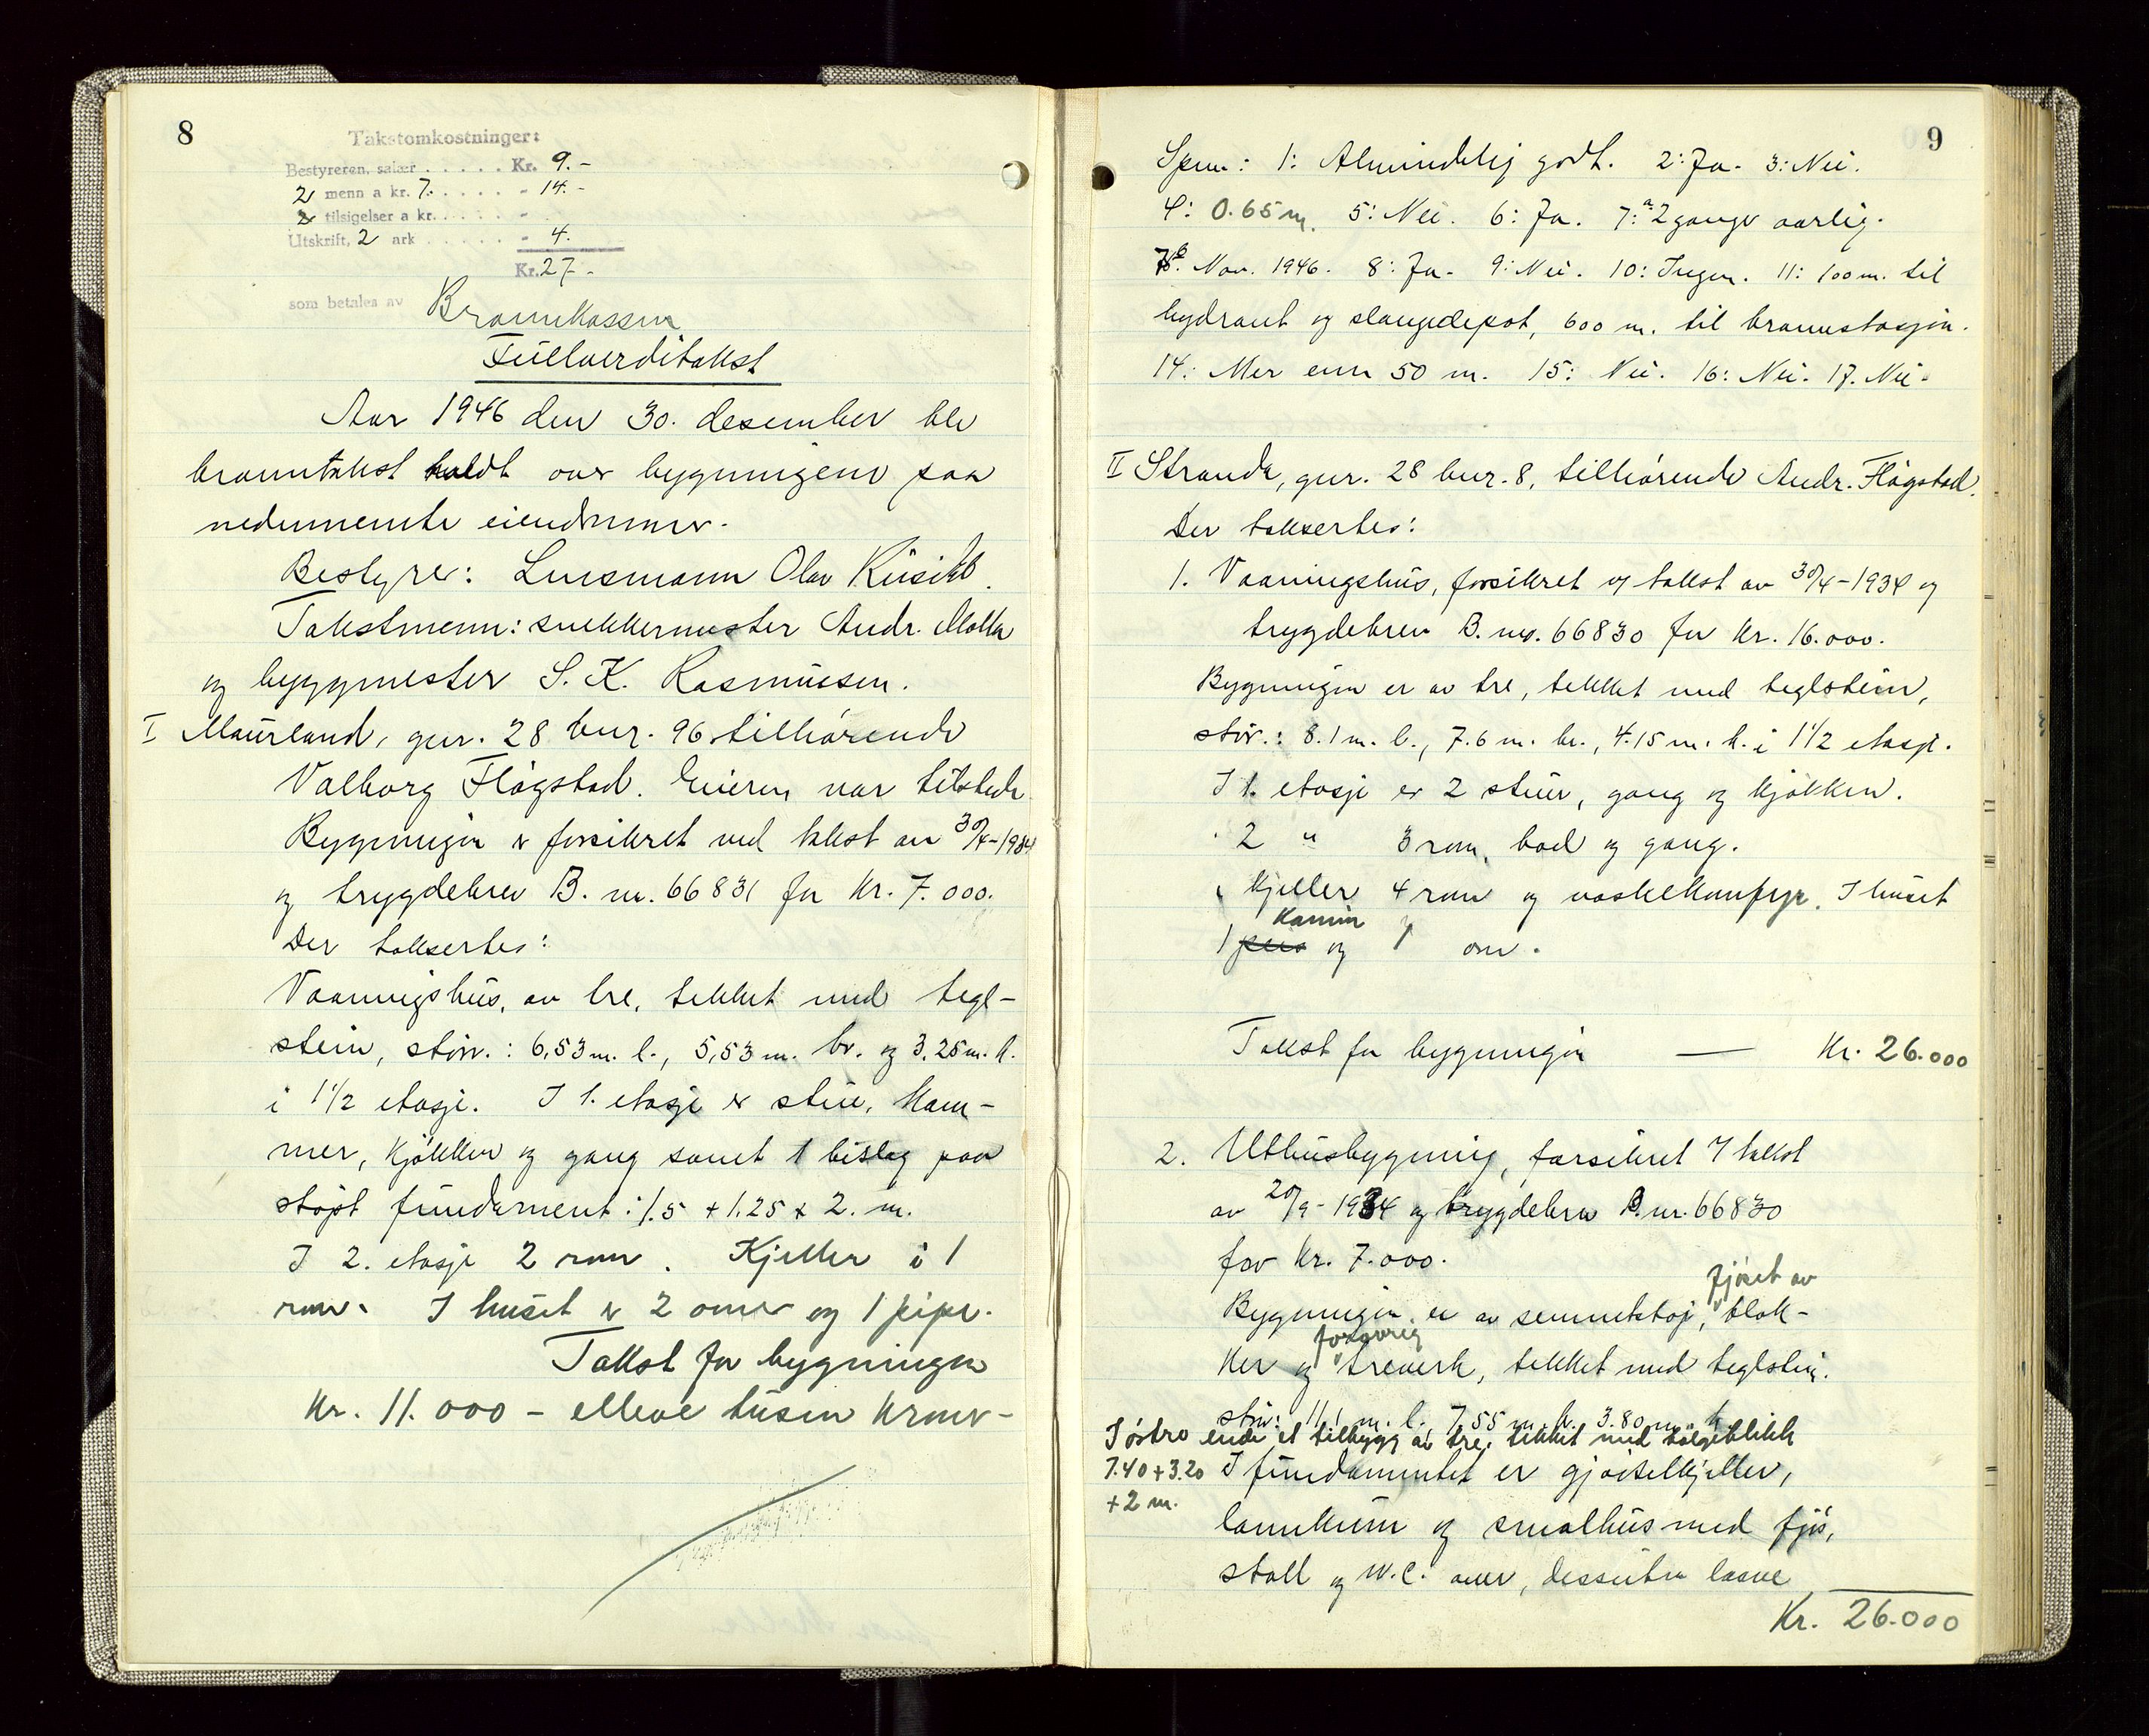 8
Takstomkostninger:
Bestyreren, salær . . . . . Kr. 9.-
2 menn a kr. 7. . . . . - 14.-
2 tilsigelser a kr. . . . . -
Utskrift, 2 ark . . . . . - 4.
Kr. 27.-
som betales av Brannkassen
Fullverditakst
Aar 1946 den 30. desember ble
branntakst holdt over bygningene paa
nedennevnte eiendommer.
Bestyrer: Lensmann Olav
Takstmenn: snekkermester Andr. Molka
og byggmester S. K. Rasmussen.
I Maurland, gnr. 28 bnr. 96 tilhørende
Valborg Fløgstad. Eieren var tilstede.
Bygningen er forsikret ved takst av 30/4-1934
og trygdebrev B. nr. 66831 for Kr. 7.000.
Der taksertes:
Vaaningshus, av tre, tekket med tegl-
stein, størr.: 6,53 m. l., 5,53 m. br. og 3.25 m. h.
i 1 1/2 etasje. I 1. etasje er stue, kam-
mer, kjøkken og gang samt 1 bislag paa
støpt fundament: 1.5 + 1.25 x 2. m.
I 2. etasje 2 rom. Kjeller i 1
rom. I huset er 2 omer og 1 pipe.
Takst for bygningen
Kr. 11.000 - elleve tusen kroner -
9
Spm: 1: Almindelig godt. 2: Ja. 3: Nei.
4: 0.65 m. 5: Nei. 6: Ja. 7:a 2 ganger aarlig.
7b: Nov. 1946. 8: Ja. 9: Nei. 10: Ingen. 11: 100 m. til
hydrant og slangedepot, 600 m. til brannstasjon.
14: Mer enn 50 m. 15: Nei. 16: Nei. 17. Nei.
II Stranda, gnr. 28 bnr. 8, tilhørende Andr. Fløgstad.
Der taksertes:
1. Vaaningshus, forsikret v/ takst av 30/4-1934 og
trygdebrev B. nr. 66830 for Kr. 16.000.
Bygningen er av tre, tekket med teglstein,
størr.: 8.1 m. l., 7.6 m. br., 4.15 m. h. i 1 1/2 etasje.
I 1. etasje er 2 stuer, gang og kjøkken.
" 2 " 3 rom, bad og gang.
" kjeller 4 rom og vaskekomfyr. I huset
kamin
1 peis og 1 omn.
Takst for bygningen — Kr. 26.000
2. Uthusbygning, forsikret v/ takst
av 20/9-1934 og trygdebrev B. nr. 66830
for Kr. 7.000.
fjøset av
Bygningen er av sementstøp, blok-
forøvrig
ker og treverk, tekket med teglstein.
størr: 11,1 m. l. 7,55 m. br. 3.80 m. h.
I østre ende et tilbygg av tre, tekket med bølgeblikk
7.40+3.20 I fundamentet er gjødselkjeller,
+2 m.
lannkum og smalhus med fjøs,
stall og W.C. over, dessuten laave
Kr. 26.000